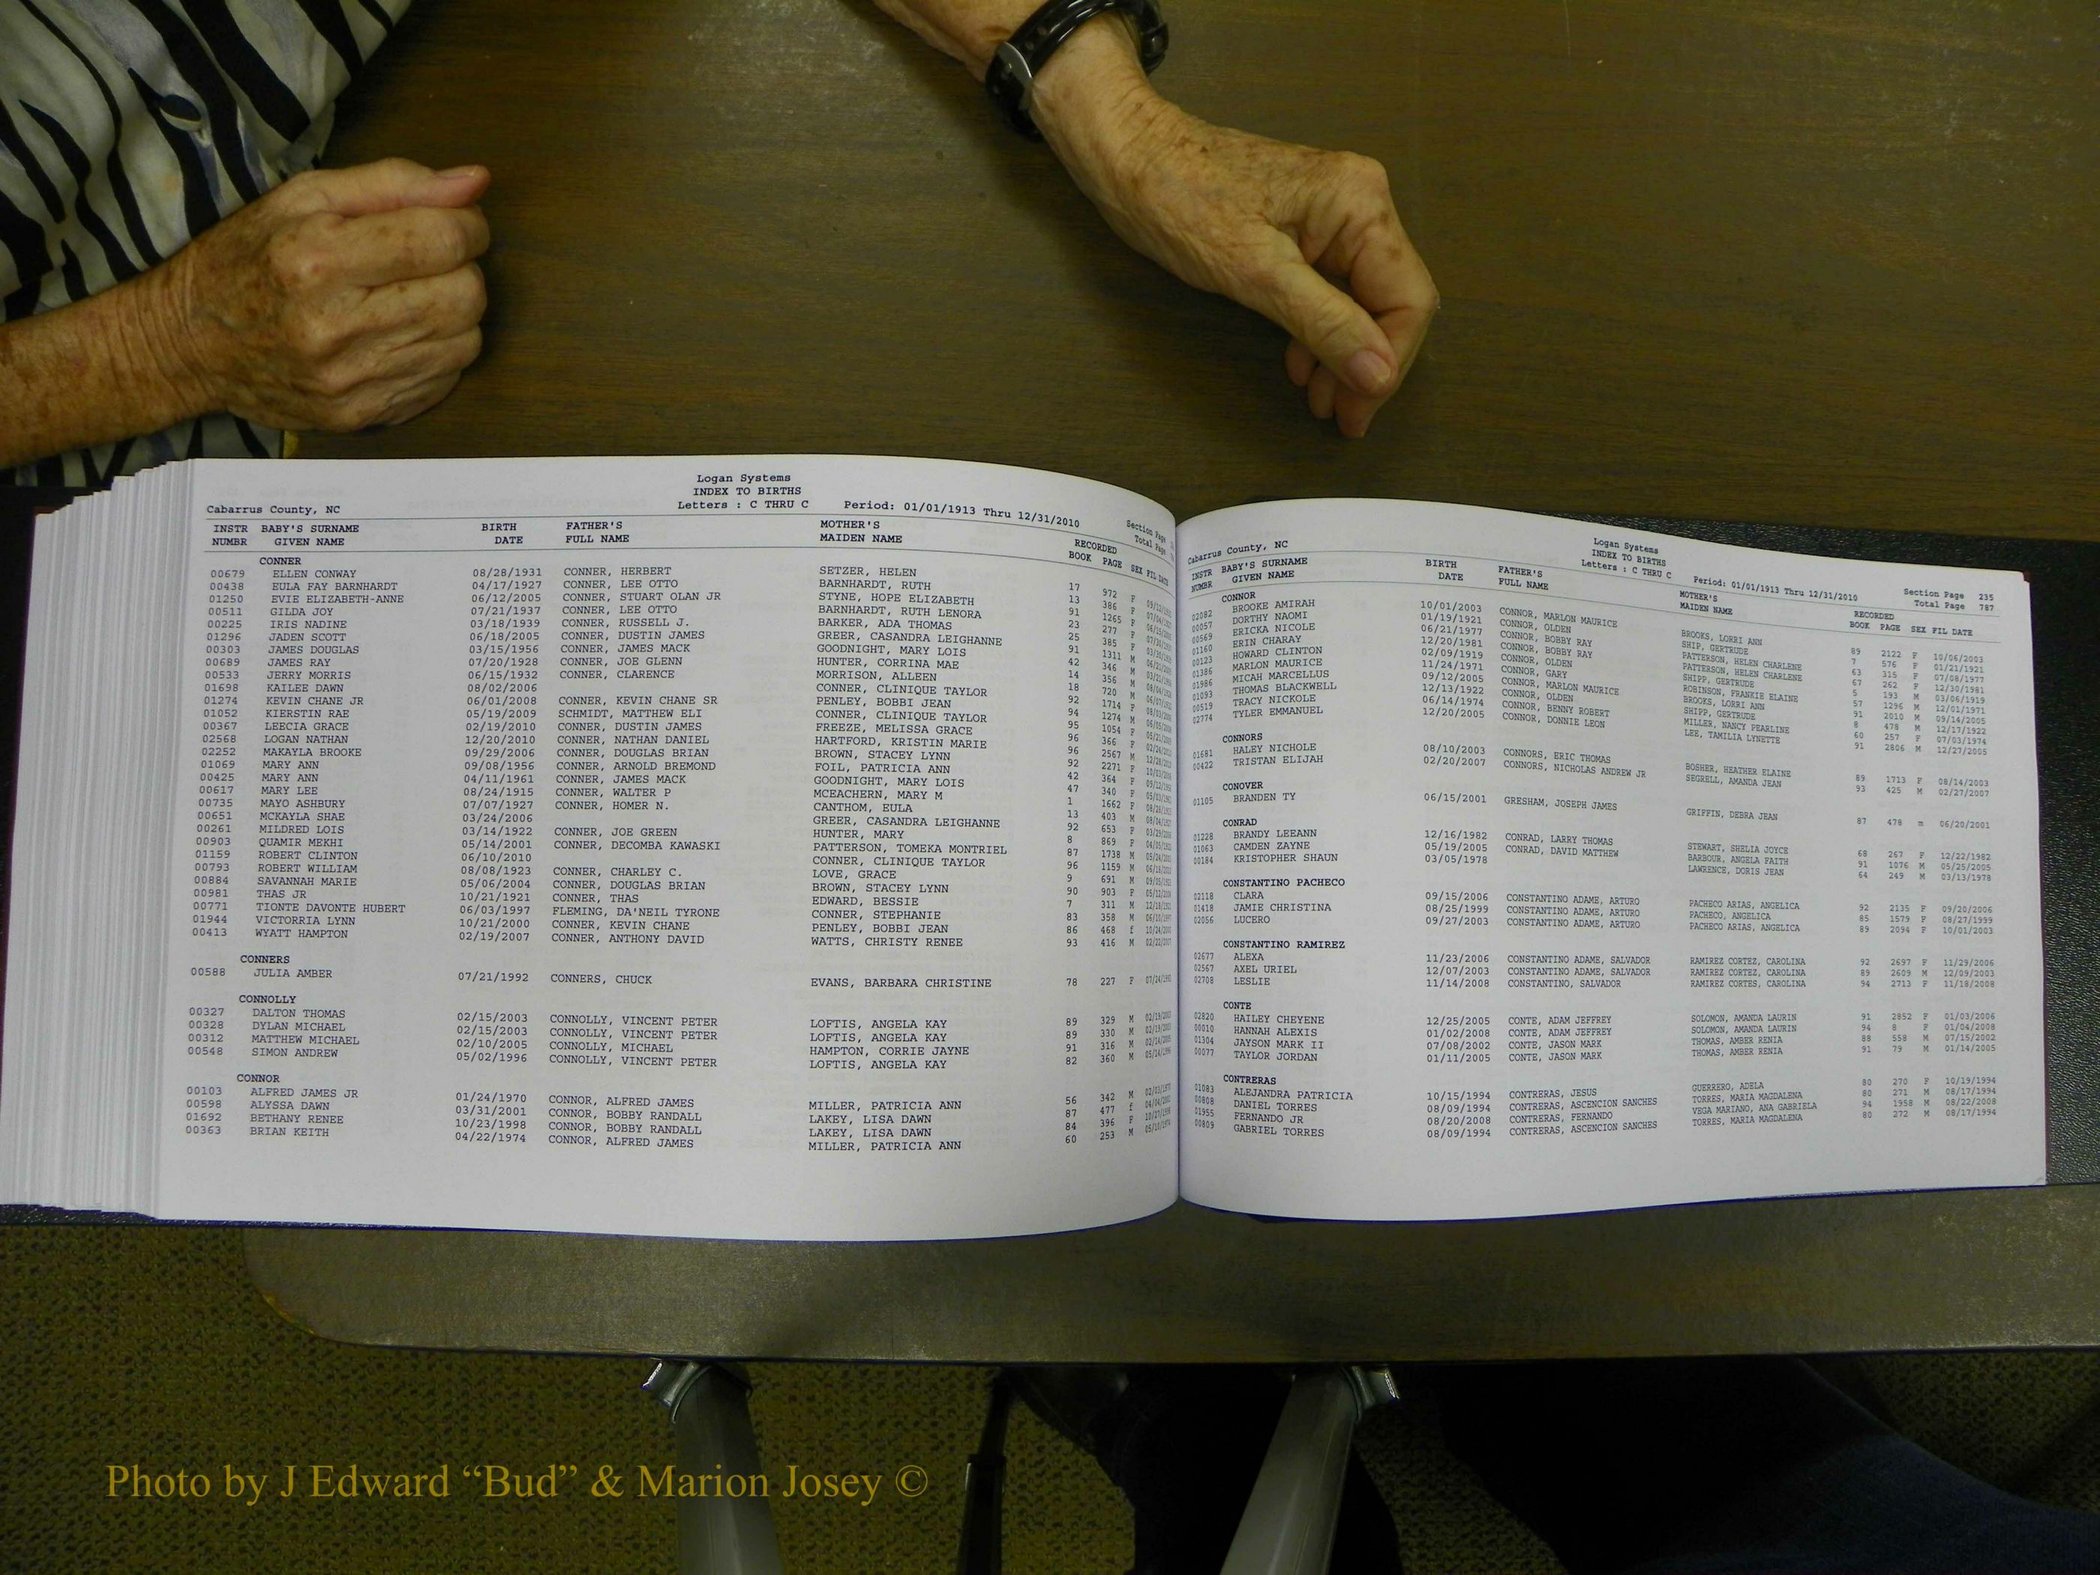 Logan Systems
INDEX TO BIRTHS
Cabarrus County, NC Letters : C THRU C Period: 01/01/1913 Thru 12/31/2010 Section Page
Total Page
INSTR BABY'S SURNAME BIRTH FATHER'S MOTHER'S RECORDED
NUMBR GIVEN NAME DATE FULL NAME MAIDEN NAME BOOK PAGE SEX FIL DATE
CONNER
00679 ELLEN CONWAY 08/28/1931 CONNER, HERBERT SETZER, HELEN 17 972 F
00438 EULA FAY BARNHARDT 04/17/1927 CONNER, LEE OTTO BARNHARDT, RUTH 13 386 F
01250 EVIE ELIZABETH-ANNE 06/12/2005 CONNER, STUART OLAN JR STYNE, HOPE ELIZABETH 91 1265 F
00511 GILDA JOY 07/21/1937 CONNER, LEE OTTO BARNHARDT, RUTH LENORA 23 277 F
00225 IRIS NADINE 03/18/1939 CONNER, RUSSELL J. BARKER, ADA THOMAS 25 385 F
01296 JADEN SCOTT 06/18/2005 CONNER, DUSTIN JAMES GREER, CASANDRA LEIGHANNE 91 1311 M
00303 JAMES DOUGLAS 03/15/1956 CONNER, JAMES MACK GOODNIGHT, MARY LOIS 42 346 M
00689 JAMES RAY 07/20/1928 CONNER, JOE GLENN HUNTER, CORRINA MAE 14 356 M
00533 JERRY MORRIS 06/15/1932 CONNER, CLARENCE MORRISON, ALLEEN 18 720 M
01698 KAILEE DAWN 08/02/2006 CONNER, CLINIQUE TAYLOR 92 1714 F
01274 KEVIN CHANE JR 06/01/2008 CONNER, KEVIN CHANE SR PENLEY, BOBBI JEAN 94 1274 M
01052 KIERSTIN RAE 05/19/2009 SCHMIDT, MATTHEW ELI CONNER, CLINIQUE TAYLOR 95 1054 F
00367 LEECIA GRACE 02/19/2010 CONNER, DUSTIN JAMES FREEZE, MELISSA GRACE 96 366 F
02568 LOGAN NATHAN 12/20/2010 CONNER, NATHAN DANIEL HARTFORD, KRISTIN MARIE 96 2567 M
02252 MAKAYLA BROOKE 09/29/2006 CONNER, DOUGLAS BRIAN BROWN, STACEY LYNN 92 2271 F
01069 MARY ANN 09/08/1956 CONNER, ARNOLD BREMOND FOIL, PATRICIA ANN 42 364 F
00425 MARY ANN 04/11/1961 CONNER, JAMES MACK GOODNIGHT, MARY LOIS 47 340 F
00617 MARY LEE 08/24/1915 CONNER, WALTER P MCEACHERN, MARY M 1 1662 F
00735 MAYO ASHBURY 07/07/1927 CONNER, HOMER N. CANTHOM, EULA 13 403 M
00651 MCKAYLA SHAE 03/24/2006 GREER, CASANDRA LEIGHANNE 92 653 F
00261 MILDRED LOIS 03/14/1922 CONNER, JOE GREEN HUNTER, MARY 8 869 F
00903 QUAMIR MEKHI 05/14/2001 CONNER, DECOMBA KAWASKI PATTERSON, TOMEKA MONTRIEL 87 1738 M
01159 ROBERT CLINTON 06/10/2010 CONNER, CLINIQUE TAYLOR 96 1159 M
00793 ROBERT WILLIAM 08/08/1923 CONNER, CHARLEY C. LOVE, GRACE 9 691 M
00884 SAVANNAH MARIE 05/06/2004 CONNER, DOUGLAS BRIAN BROWN, STACEY LYNN 90 903 F
00981 THAS JR 10/21/1921 CONNER, THAS EDWARD, BESSIE 7 311 M
00771 TIONTE DAVONTE HUBERT 06/03/1997 FLEMING, DA'NEIL TYRONE CONNER, STEPHANIE 83 358 M
01944 VICTORRIA LYNN 10/21/2000 CONNER, KEVIN CHANE PENLEY, BOBBI JEAN 86 468 f
00413 WYATT HAMPTON 02/19/2007 CONNER, ANTHONY DAVID WATTS, CHRISTY RENEE 93 416 M
CONNERS
00588 JULIA AMBER 07/21/1992 CONNERS, CHUCK EVANS, BARBARA CHRISTINE 78 227 F
CONNOLLY
00327 DALTON THOMAS 02/15/2003 CONNOLLY, VINCENT PETER LOFTIS, ANGELA KAY 89 329 M
00328 DYLAN MICHAEL 02/15/2003 CONNOLLY, VINCENT PETER LOFTIS, ANGELA KAY 89 330 M
00312 MATTHEW MICHAEL 02/10/2005 CONNOLLY, MICHAEL HAMPTON, CORRIE JAYNE 91 316 M
00548 SIMON ANDREW 05/02/1996 CONNOLLY, VINCENT PETER LOFTIS, ANGELA KAY 82 360 M
CONNOR
00103 ALFRED JAMES JR 01/24/1970 CONNOR, ALFRED JAMES MILLER, PATRICIA ANN 56 342 M
00598 ALYSSA DAWN 03/31/2001 CONNOR, BOBBY RANDALL LAKEY, LISA DAWN 87 477 f
01692 BETHANY RENEE 10/23/1998 CONNOR, BOBBY RANDALL LAKEY, LISA DAWN 84 396 F
00363 BRIAN KEITH 04/22/1974 CONNOR, ALFRED JAMES MILLER, PATRICIA ANN 60 253 M
Logan Systems
INDEX TO BIRTHS
Cabarrus County, NC Letters : C THRU C Period: 01/01/1913 Thru 12/31/2010 Section Page 235
Total Page 787
INSTR BABY'S SURNAME BIRTH FATHER'S MOTHER'S RECORDED
NUMBR GIVEN NAME DATE FULL NAME MAIDEN NAME BOOK PAGE SEX FIL DATE
CONNOR
02082 BROOKE AMIRAH 10/01/2003 CONNOR, MARLON MAURICE BROOKS, LORRI ANN 89 2122 F 10/06/2003
00057 DORTHY NAOMI 01/19/1921 CONNOR, OLDEN SHIP, GERTRUDE 7 576 F 01/21/1921
00569 ERICKA NICOLE 06/21/1977 CONNOR, BOBBY RAY PATTERSON, HELEN CHARLENE 63 315 F 07/08/1977
01160 ERIN CHARAY 12/20/1981 CONNOR, BOBBY RAY PATTERSON, HELEN CHARLENE 67 262 F 12/30/1981
00123 HOWARD CLINTON 02/09/1919 CONNOR, OLDEN SHIPP, GERTRUDE 5 193 M 03/06/1919
01386 MARLON MAURICE 11/24/1971 CONNOR, GARY ROBINSON, FRANKIE ELAINE 57 1296 M 12/01/1971
01986 MICAH MARCELLUS 09/12/2005 CONNOR, MARLON MAURICE BROOKS, LORRI ANN 91 2010 M 09/14/2005
01093 THOMAS BLACKWELL 12/13/1922 CONNOR, OLDEN SHIPP, GERTRUDE 8 478 M 12/17/1922
00519 TRACY NICKOLE 06/14/1974 CONNOR, BENNY ROBERT MILLER, NANCY PEARLINE 60 257 F 07/03/1974
02774 TYLER EMMANUEL 12/20/2005 CONNOR, DONNIE LEON LEE, TAMILIA LYNETTE 91 2806 M 12/27/2005
CONNORS
01681 HALEY NICHOLE 08/10/2003 CONNORS, ERIC THOMAS BOSHER, HEATHER ELAINE 89 1713 F 08/14/2003
00422 TRISTAN ELIJAH 02/20/2007 CONNORS, NICHOLAS ANDREW JR SEGRELL, AMANDA JEAN 93 425 M 02/27/2007
CONOVER
01105 BRANDEN TY 06/15/2001 GRESHAM, JOSEPH JAMES GRIFFIN, DEBRA JEAN 87 478 m 06/20/2001
CONRAD
01228 BRANDY LEEANN 12/16/1982 CONRAD, LARRY THOMAS STEWART, SHELIA JOYCE 68 267 F 12/22/1982
01063 CAMDEN ZAYNE 05/19/2005 CONRAD, DAVID MATTHEW BARBOUR, ANGELA FAITH 91 1076 M 05/25/2005
00184 KRISTOPHER SHAUN 03/05/1978 LAWRENCE, DORIS JEAN 64 249 M 03/13/1978
CONSTANTINO PACHECO
02118 CLARA 09/15/2006 CONSTANTINO ADAME, ARTURO PACHECO ARIAS, ANGELICA 92 2135 F 09/20/2006
01418 JAMIE CHRISTINA 08/25/1999 CONSTANTINO ADAME, ARTURO PACHECO, ANGELICA 85 1579 F 08/27/1999
02056 LUCERO 09/27/2003 CONSTANTINO ADAME, ARTURO PACHECO ARIAS, ANGELICA 89 2094 F 10/01/2003
CONSTANTINO RAMIREZ
02677 ALEXA 11/23/2006 CONSTANTINO ADAME, SALVADOR RAMIREZ CORTEZ, CAROLINA 92 2697 F 11/29/2006
02567 AXEL URIEL 12/07/2003 CONSTANTINO ADAME, SALVADOR RAMIREZ CORTEZ, CAROLINA 89 2609 M 12/09/2003
02708 LESLIE 11/14/2008 CONSTANTINO, SALVADOR RAMIREZ CORTES, CAROLINA 94 2713 F 11/18/2008
CONTE
02820 HAILEY CHEYENE 12/25/2005 CONTE, ADAM JEFFREY SOLOMON, AMANDA LAURIN 91 2852 F 01/03/2006
00010 HANNAH ALEXIS 01/02/2008 CONTE, ADAM JEFFREY SOLOMON, AMANDA LAURIN 94 8 F 01/04/2008
01304 JAYSON MARK II 07/08/2002 CONTE, JASON MARK THOMAS, AMBER RENIA 88 558 M 07/15/2002
00077 TAYLOR JORDAN 01/11/2005 CONTE, JASON MARK THOMAS, AMBER RENIA 91 79 M 01/14/2005
CONTRERAS
01083 ALEJANDRA PATRICIA 10/15/1994 CONTRERAS, JESUS GUERRERO, ADELA 80 270 F 10/19/1994
00808 DANIEL TORRES 08/09/1994 CONTRERAS, ASCENCION SANCHES TORRES, MARIA MAGDALENA 80 271 M 08/17/1994
01955 FERNANDO JR 08/20/2008 CONTRERAS, FERNANDO VEGA MARIANO, ANA GABRIELA 94 1958 M 08/22/2008
00809 GABRIEL TORRES 08/09/1994 CONTRERAS, ASCENCION SANCHES TORRES, MARIA MAGDALENA 80 272 M 08/17/1994
Photo by J Edward “Bud” & Marion Josey ©